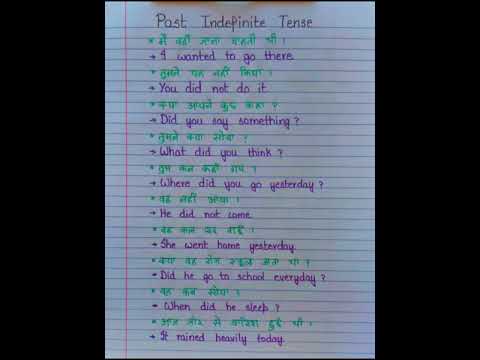 Past Indefinite Tense
* मैं वहाँ जाना चाहती थी।
→ I wanted to go there.
* तुमने यह नहीं किया।
→ You did not do it.
* क्या आपने कुछ कहा ?
→ Did you say something?
* तुमने क्या सोचा ?
→ What did you think ?
* तुम कल कहाँ गए ?
→ Where did you go yesterday ?
* वह नहीं आया।
→ He did not come.
* वह कल घर गई।
→ She went home yesterday.
* क्या वह रोज स्कूल जाता था ?
→ Did he go to school everyday ?
* वह कब सोया ?
→ When did he sleep ?
* आज जोर से बारिश हुई थी।
→ It rained heavily today.